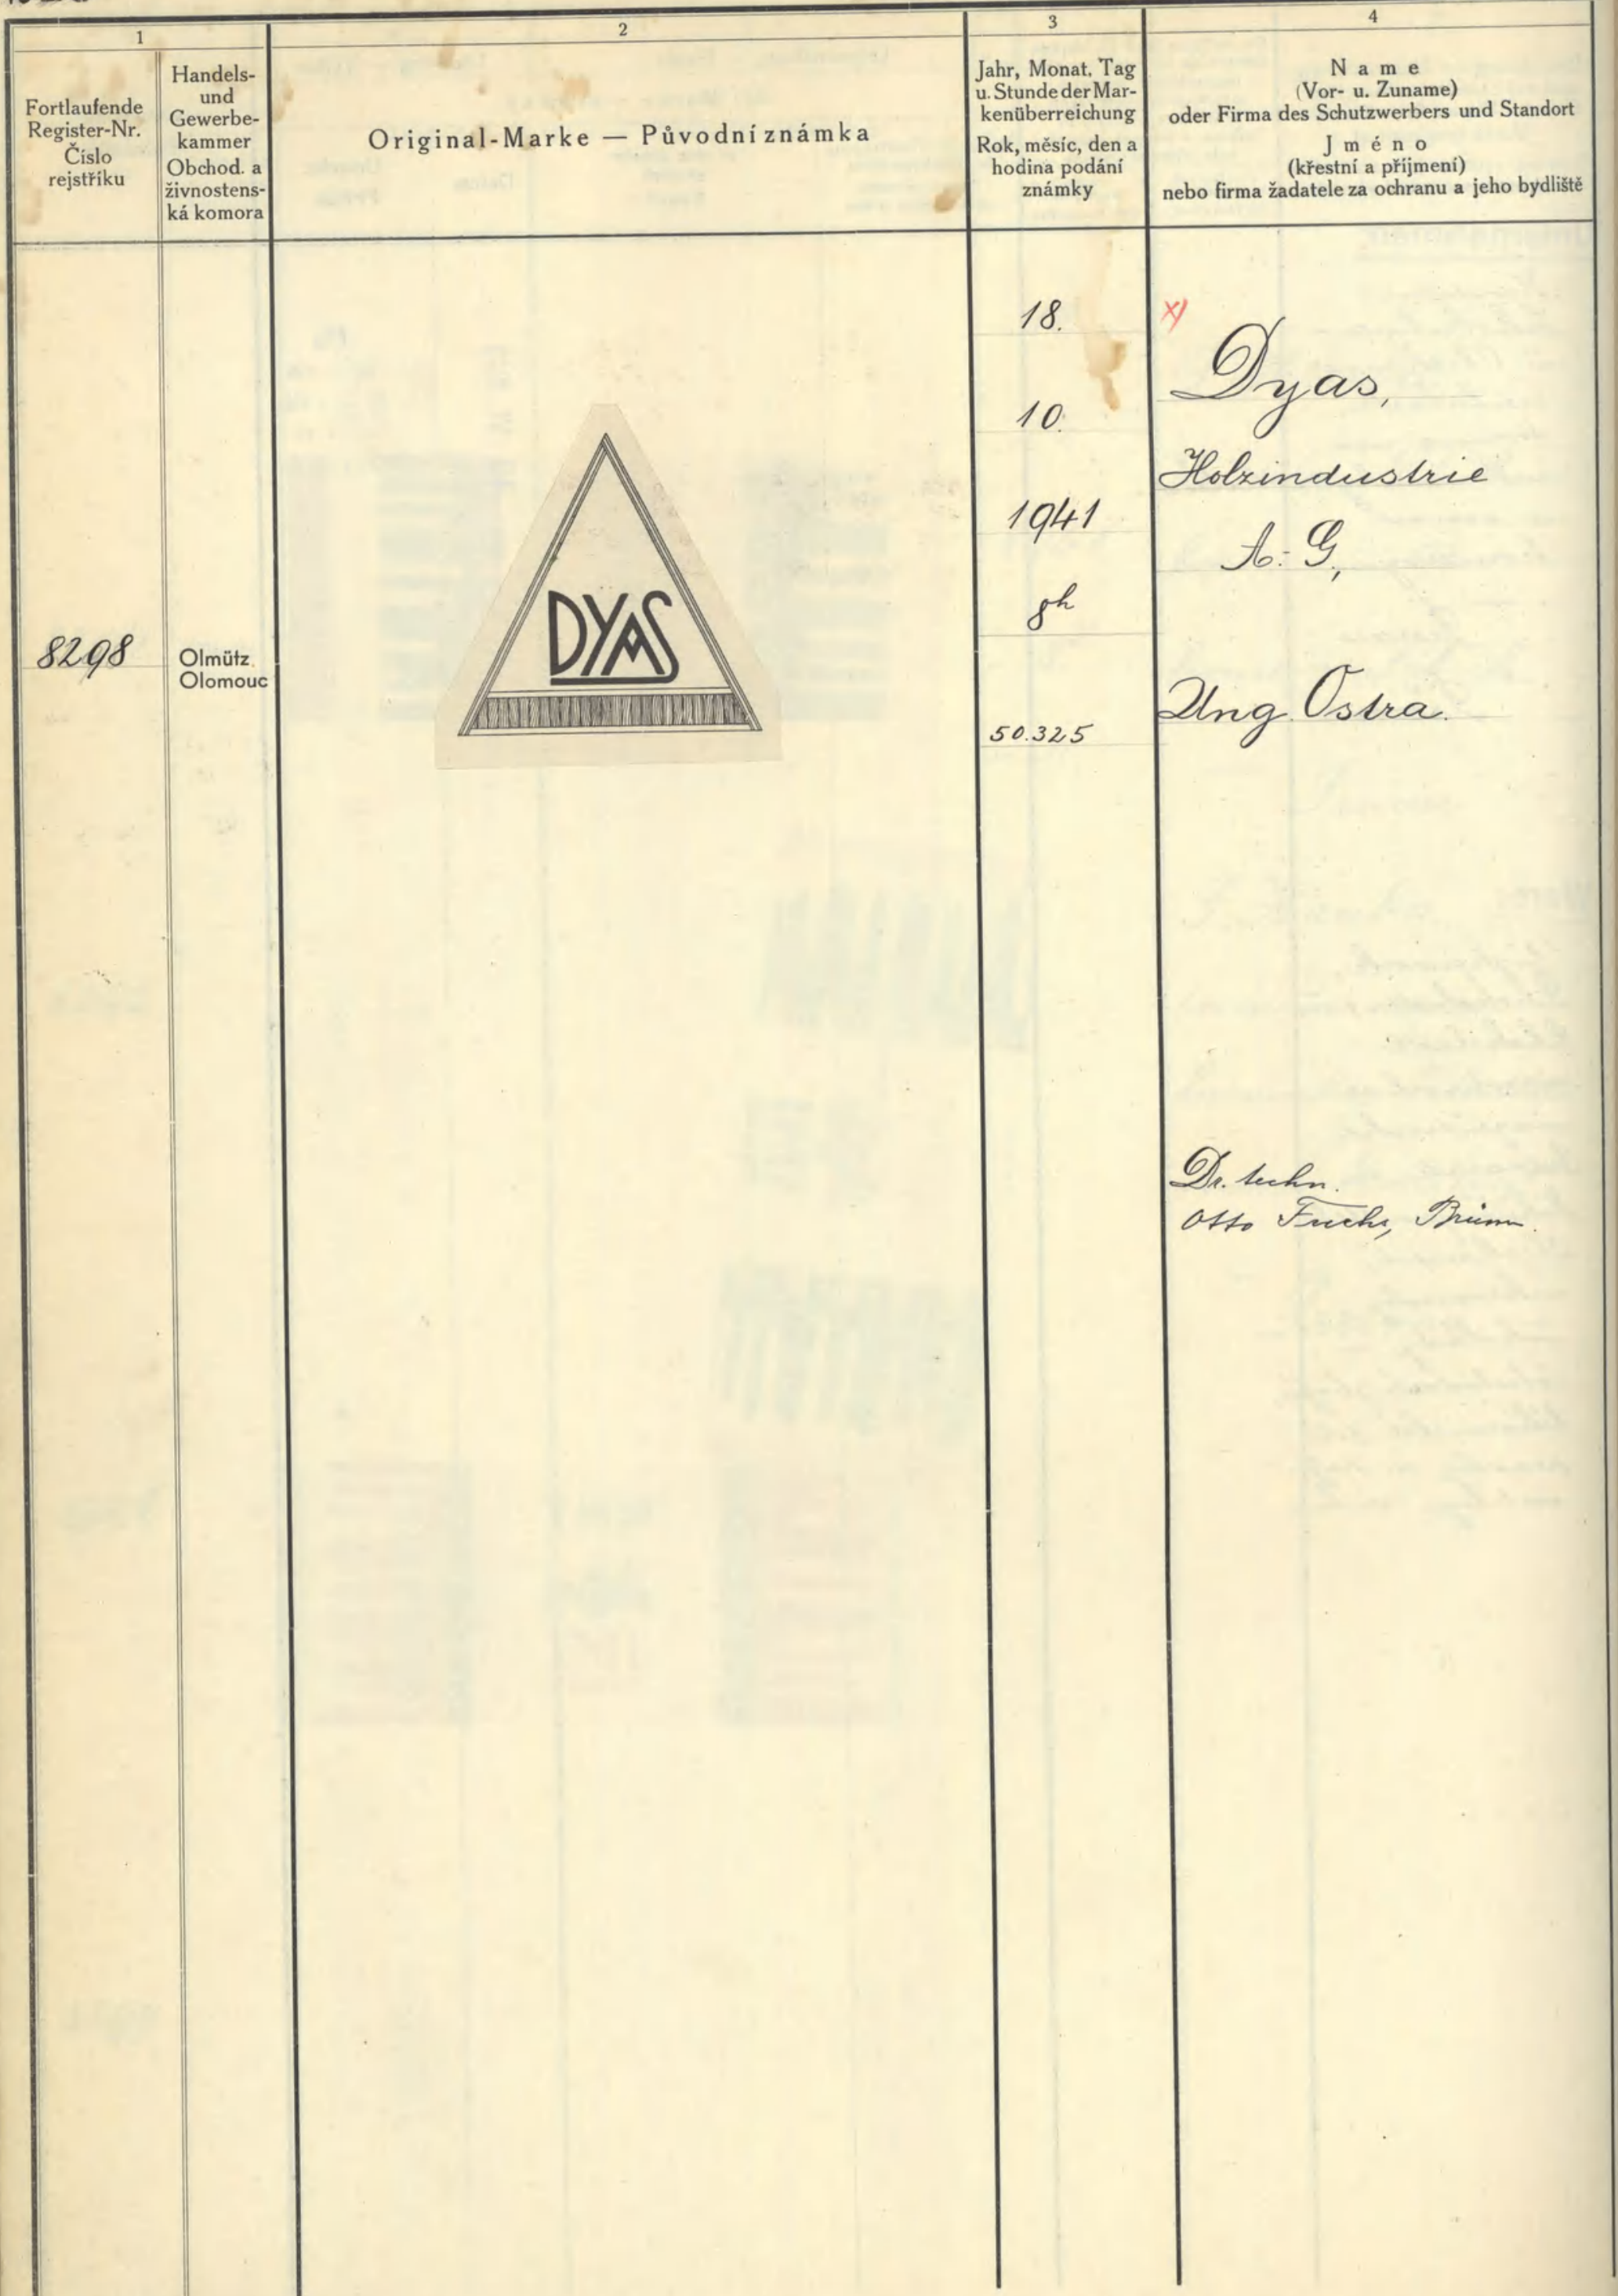 1
2
3
4
Fortlaufende
Register-Nr.
Číslo
rejstříku
Handels-
und
Gewerbe-
kammer
Obchod. a
živnostens-
ká komora
Original-Marke — Původní známka
Jahr, Monat, Tag
u. Stunde der Mar-
kenüberreichung
Rok, měsíc, den a
hodina podání
známky
Name
(Vor- u. Zuname)
oder Firma des Schutzwerbers und Standort
Jméno
(křestní a příjmení)
nebo firma žadatele za ochranu a jeho bydliště
8298
Olmütz
Olomouc
DYAS
18.
10.
1941
8h
50.325
x)
Dyas,
Holzindustrie
A.-G.,
Ung. Ostra.
Dr. techn.
Otto Fuchs, Brünn.